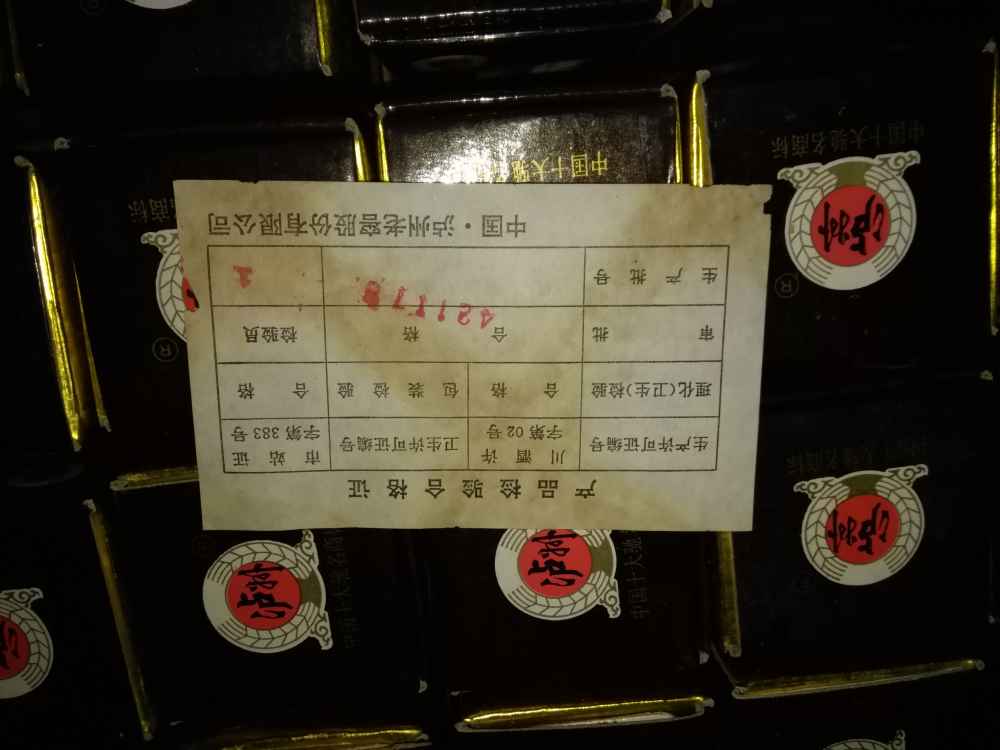 产品检验合格证
生产许可证编号 川酒许字第02号 卫生许可证编号 市站证字第383号
理化(卫生)检验 合格 包装检验 合格
审批 合格 检验员
生产批号
中国·泸州老窖股份有限公司
中国十大驰名商标
泸州
®
中国十大驰名商标
泸州
中国十大驰名商标
泸州
中国十大驰
泸州
中国十大驰
名商标
®